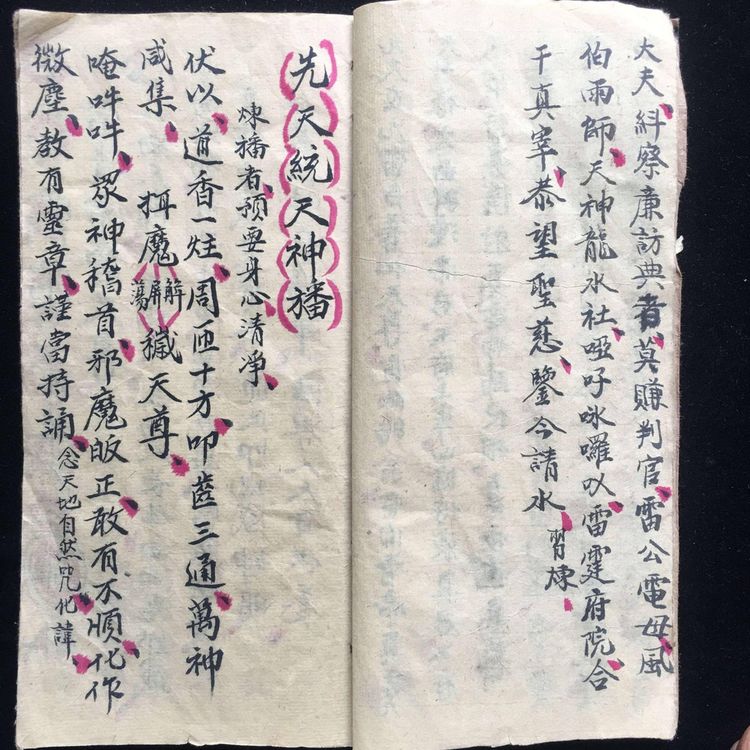 大夫糾察廉訪典者莫賺判官雷公電母風
伯雨師天神龍水社啞吇咏囉㕥雷霆府院合
干真宰恭望聖慈鑒今請水習煉
先天統天神旛
煉播者預要身心清凈
伏以道香一炷周匝十方叩齒三通萬神
咸集
挕魔
解屏蕩
穢天尊
唵吽吽眾神稽首邪魔皈正敢有不順化作
微塵教有靈章謹當持誦念天地自然咒化諱